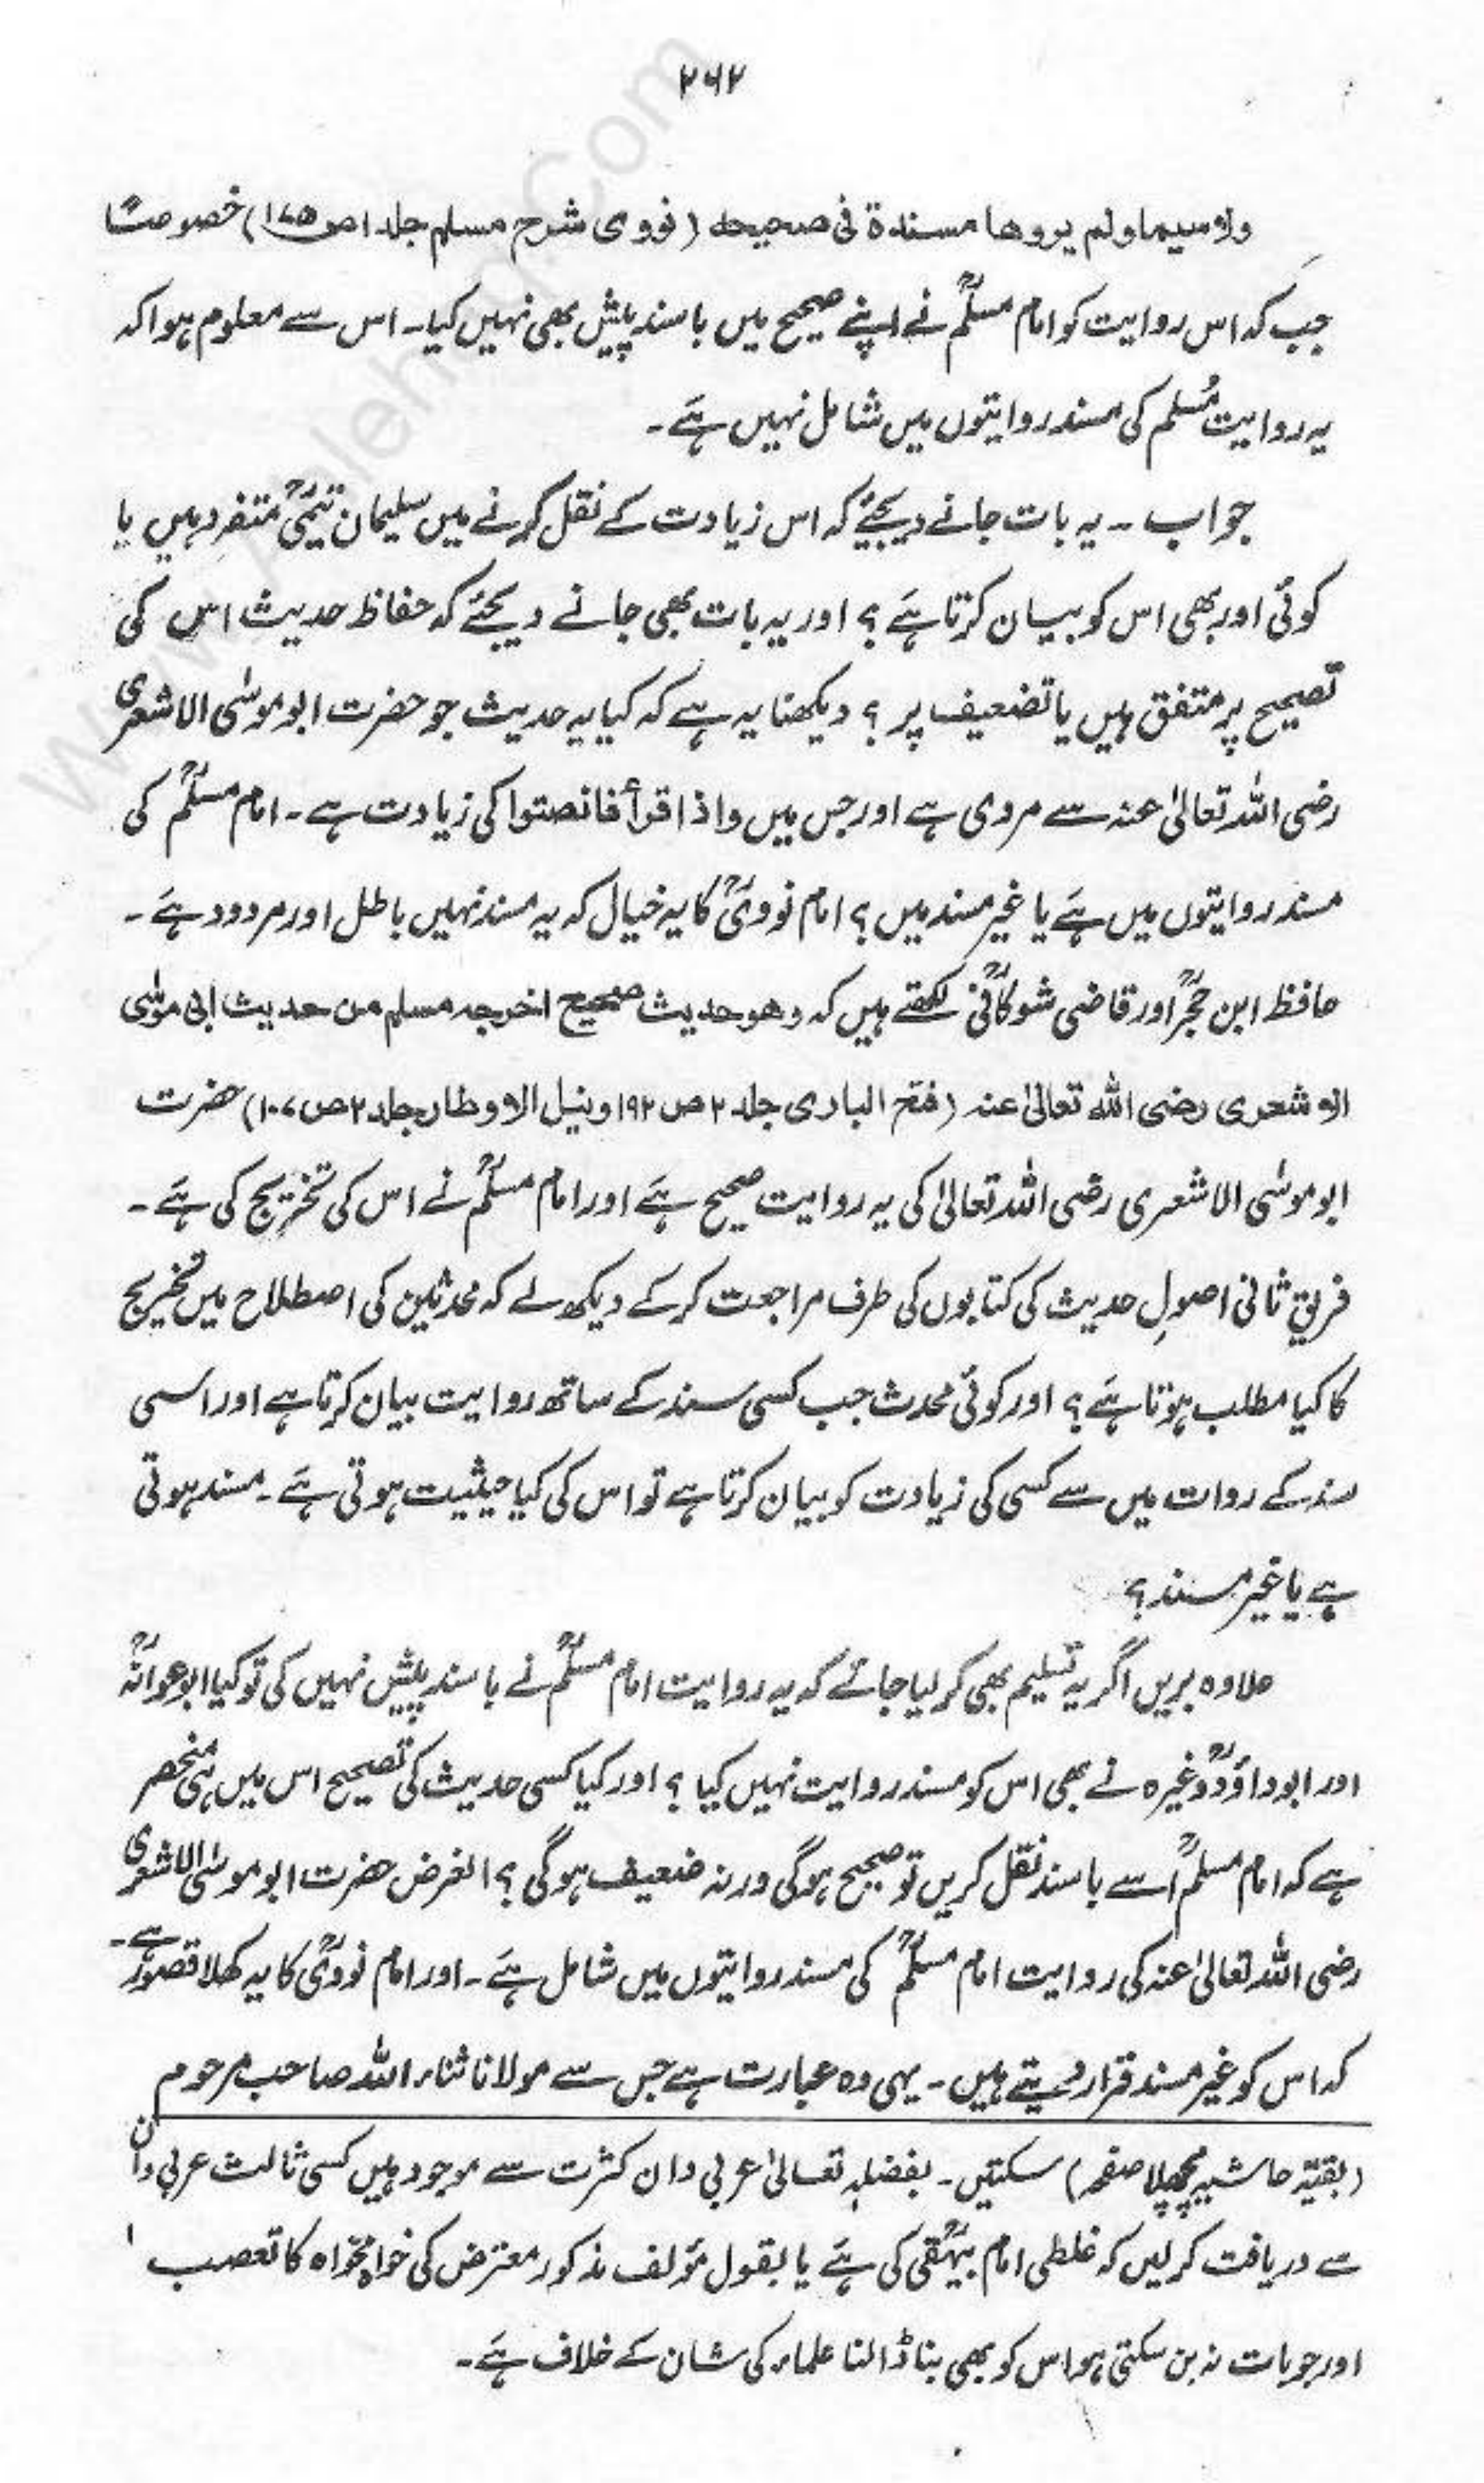 ۲۶۲
ولا سیما ولم یروھا مسندۃ فی صحیحہ (نووی شرح مسلم جلد ۱ ص ۱۷۵) خصوصًا
جب کہ اس روایت کو امام مسلمؒ نے اپنے صحیح میں باسند پیش بھی نہیں کیا۔ اس سے معلوم ہوا کہ
یہ روایت مُسلم کی مسند روایتوں میں شامل نہیں ہَے۔
جواب ۔ یہ بات جانے دیجئے کہ اس زیادت کے نقل کرنے میں سلیمان تیمیؒ متفرد ہیں یا
کوئی اور بھی اس کو بیان کرتا ہَے ؟ اور یہ بات بھی جانے دیجئے کہ حفاظ حدیث اس کی
تصحیح پر متفق ہیں یا تضعیف پر ؟ دیکھنا یہ ہے کہ کیا یہ حدیث جو حضرت ابو موسٰی الاشعری
رضی اللہ تعالیٰ عنہ سے مروی ہے اور جس میں واذا قرأ فانصتوا کی زیادت ہے۔ امام مسلمؒ کی
مسند روایتوں میں ہَے یا غیر مسند میں ؟ امام نوویؒ کا یہ خیال کہ یہ مسند نہیں باطل اور مردود ہَے ۔
حافظ ابن حجرؒ اور قاضی شوکانیؒ لکھتے ہیں کہ وھو حدیث صحیح اخرجہ مسلم من حدیث ابی موسٰی
الاشعری رضی اللہ تعالیٰ عنہ (فتح الباری جلد ۲ ص ۱۹۲ و نیل الاوطار جلد ۲ ص ۱۰۷) حضرت
ابو موسٰی الاشعری رضی اللہ تعالیٰ کی یہ روایت صحیح ہَے اور امام مسلمؒ نے اس کی تخریج کی ہَے ۔
فریقِ ثانی اصولِ حدیث کی کتابوں کی طرف مراجعت کر کے دیکھ لے کہ محدثین کی اصطلاح میں تخریج
کا کیا مطلب ہوتا ہَے ؟ اور کوئی محدث جب کسی سند کے ساتھ روایت بیان کرتا ہے اور اسی
سند کے روات میں سے کسی کی زیادت کو بیان کرتا ہے تو اس کی کیا حیثیت ہوتی ہَے ۔ مسند ہوتی
ہے یا غیر مسند ؟
علاوہ بریں اگر یہ تسلیم بھی کر لیا جائے کہ یہ روایت امام مسلمؒ نے باسند پیش نہیں کی تو کیا ابوعوانہؒ
اور ابوداؤدؒ وغیرہ نے بھی اس کو مسند روایت نہیں کیا ؟ اور کیا کسی حدیث کی تصحیح اس میں ہی منحصر
ہے کہ امام مسلمؒ اُسے باسند نقل کریں تو صحیح ہوگی ورنہ ضعیف ہوگی ؟ الغرض حضرت ابو موسٰی الاشعری
رضی اللہ تعالیٰ عنہ کی روایت امام مسلمؒ کی مسند روایتوں میں شامل ہَے ۔ اور امام نوویؒ کا یہ کھلا قصور ہے۔
کہ اس کو غیر مسند قرار دیتے ہیں ۔ یہی وہ عبارت ہے جس سے مولانا ثناء اللہ صاحب مرحوم
(بقیّہ حاشیہ پچھلا صفحہ) سکتیں۔ بفضلہٖ تعالیٰ عربی دان کثرت سے موجود ہیں کسی ثالث عربی دان
سے دریافت کر لیں کہ غلطی امام بیہقیؒ کی ہَے یا بقول مؤلف مذکور معترض کی خواہ مخواہ کا تعصب ،
اور جو بات نہ بن سکتی ہو اس کو بھی بنا ڈالنا علماء کی شان کے خلاف ہَے۔